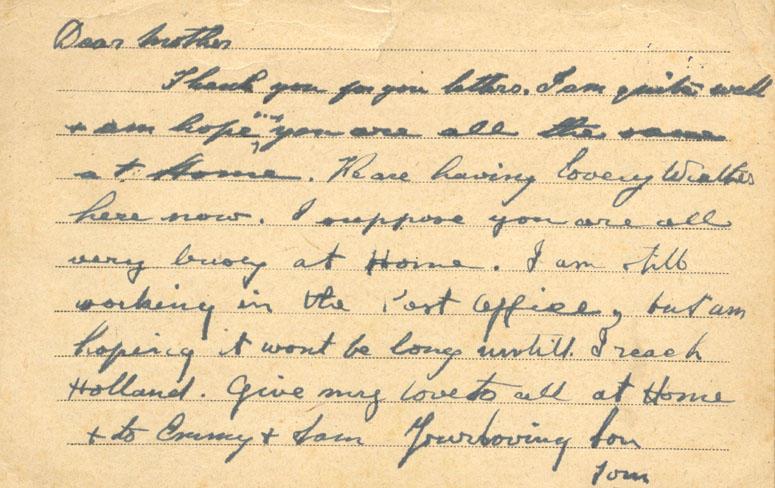 Dear Mother
Thank you for you letters. I am quite well
+ am hope "ing" you are all the same
at Home. We are having Lovely Weather
here now. I suppose you are all
very busey at Home. I am still
working in the Post Office, but am
hoping it wont be long untill I reach
Holland. Give my love to all at Home
+ to Emmy + Sam Your Loving Son
Tom